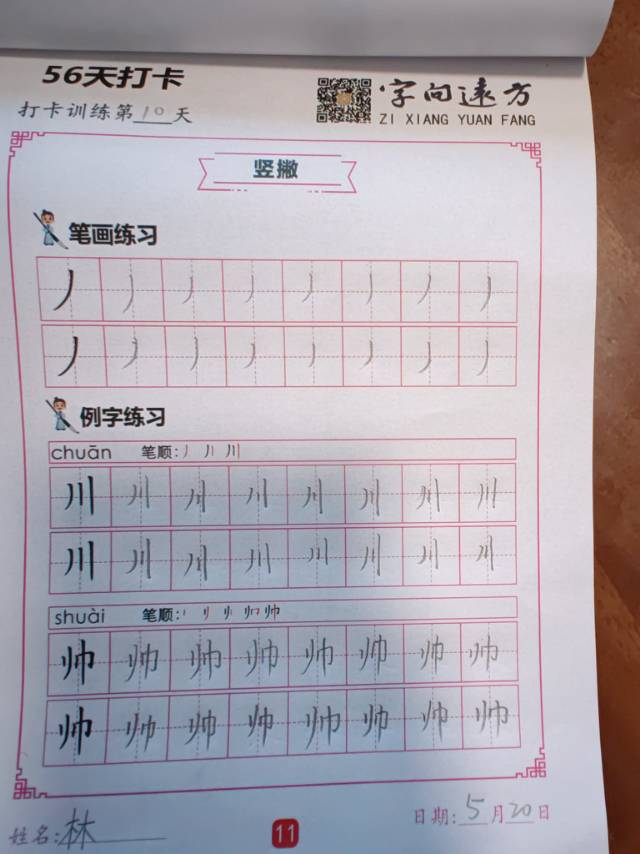 56天打卡
打卡训练第10天
字向远方
ZI XIANG YUAN FANG
竖撇
笔画练习
丿丿丿丿丿丿丿丿
丿丿丿丿丿丿丿丿
例字练习
chuān 笔顺:丿 丿丨 川
川川川川川川川川
川川川川川川川川
shuài 笔顺:
帅帅帅帅帅帅帅帅
帅帅帅帅帅帅帅帅
姓名:林
11
日期:5月20日